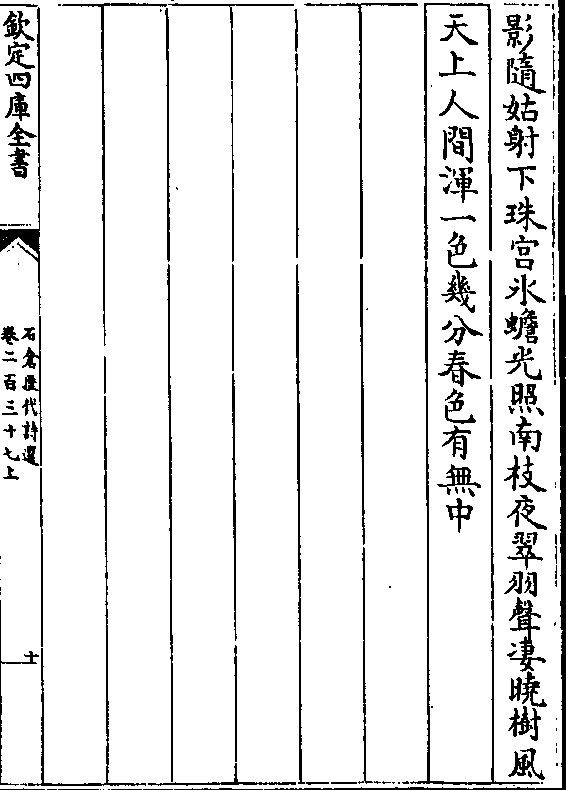 影隨姑射下珠宫氷蟾光照南枝夜翠羽聲凄曉樹風
天上人間渾一色幾分春色有無中
欽定四庫全書
石倉歷代詩選
卷二百三十七上
十